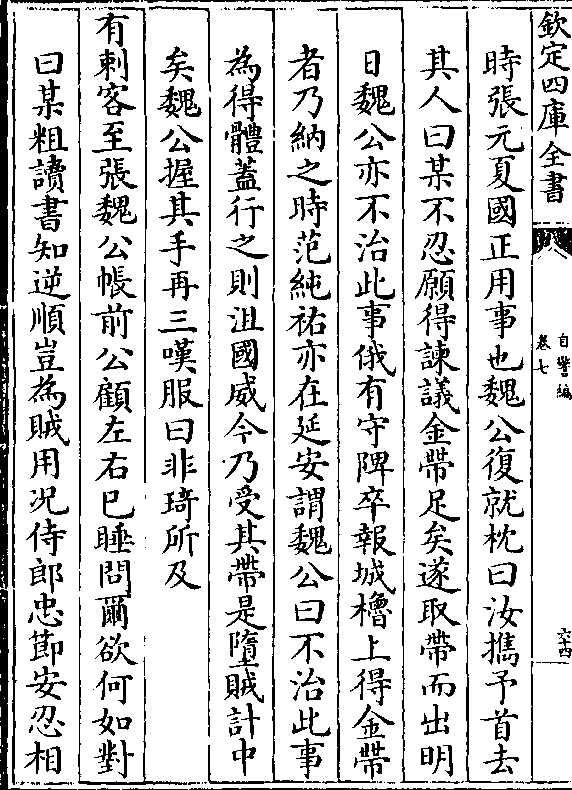 欽定四庫全書
自警編
卷七
六十四
時張元夏國正用事也魏公復就枕曰汝攜予首去
其人曰某不忍願得諫議金帶足矣遂取帶而出明
日魏公亦不治此事俄有守陴卒報城櫓上得金帶
者乃納之時范純祐亦在延安謂魏公曰不治此事
為得體蓋行之則沮國威今乃受其帶是墮賊計中
矣魏公握其手再三嘆服曰非琦所及
有刺客至張魏公帳前公顧左右已睡問爾欲何如對
曰某粗讀書知逆順豈為賊用況侍郎忠節安忍相